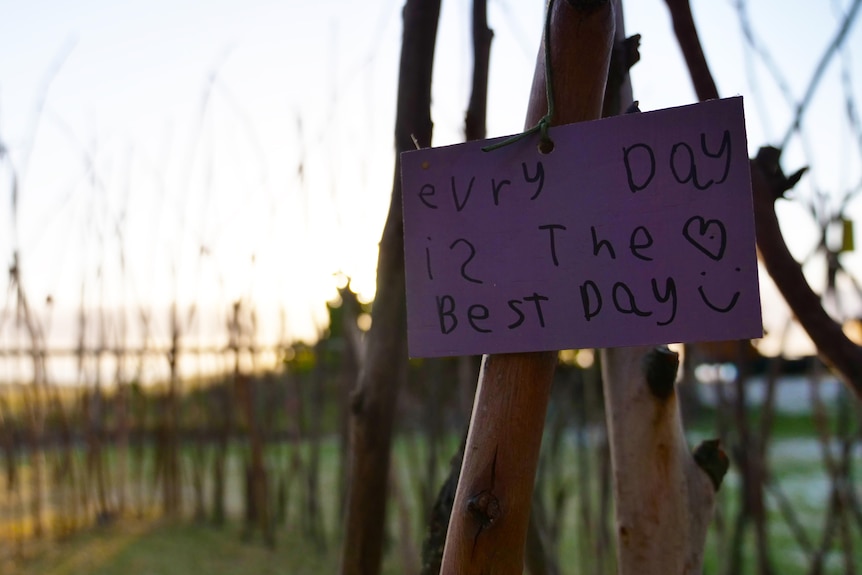 evry DAY
is The ♡
Best DAy :)